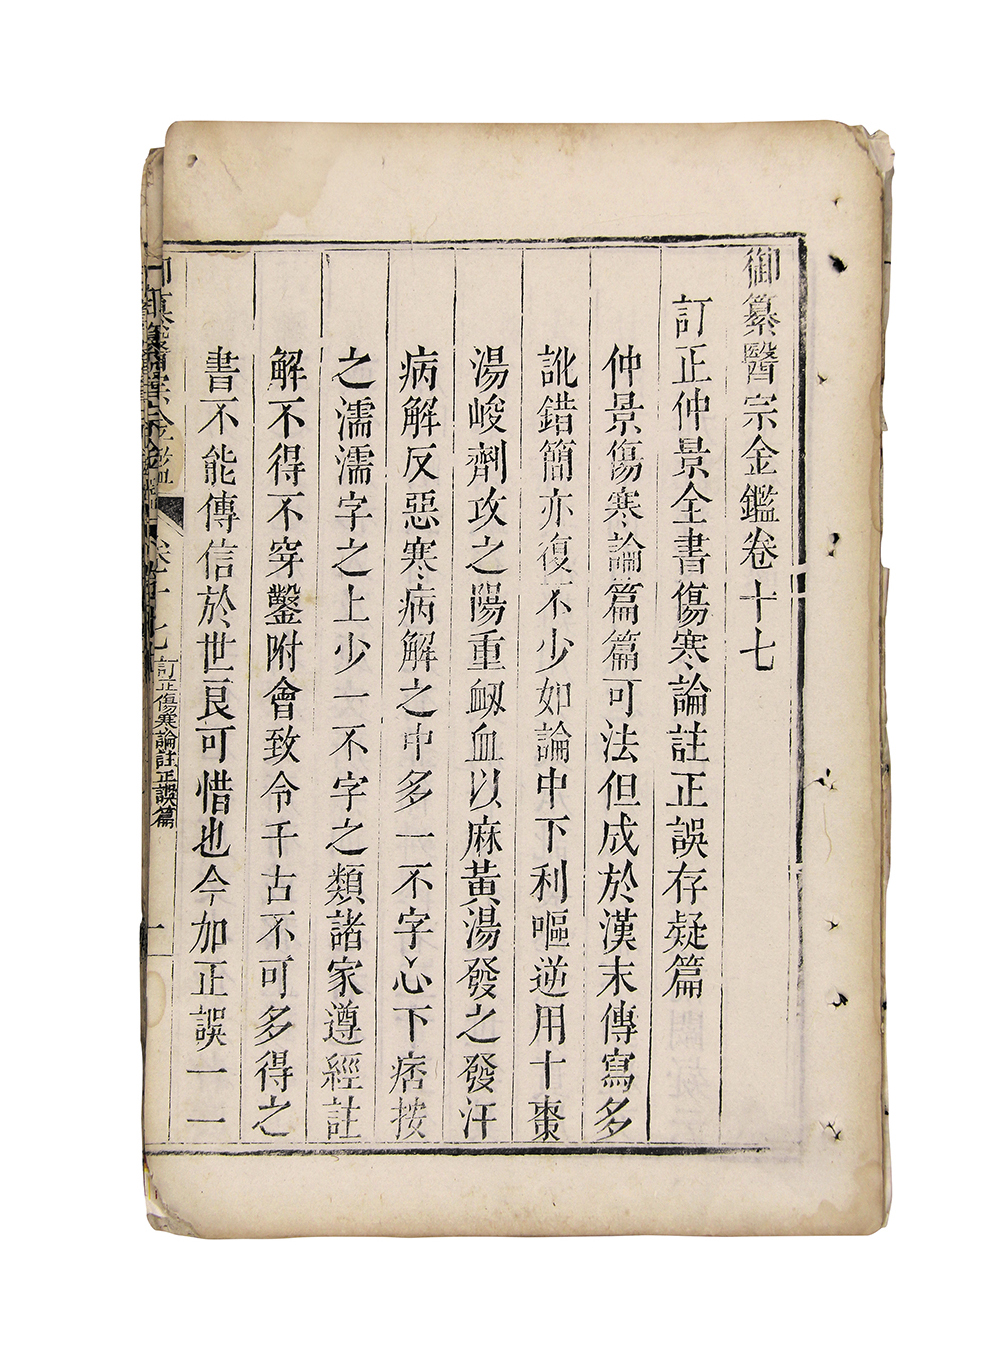 御纂醫宗金鑑卷十七
訂正仲景全書傷寒論註正誤存疑篇
仲景傷寒論篇篇可法但成於漢末傳寫多
訛錯簡亦復不少如論中下利嘔逆用十棗
湯峻劑攻之陽重衂血以麻黃湯發之發汗
病解反惡寒病解之中多一不字心下痞按
之濡濡字之上少一不字之類諸家遵經註
解不得不穿鑿附會致令千古不可多得之
書不能傳信於世良可惜也今加正誤一一
卷十七 訂正傷寒論註正誤篇 一